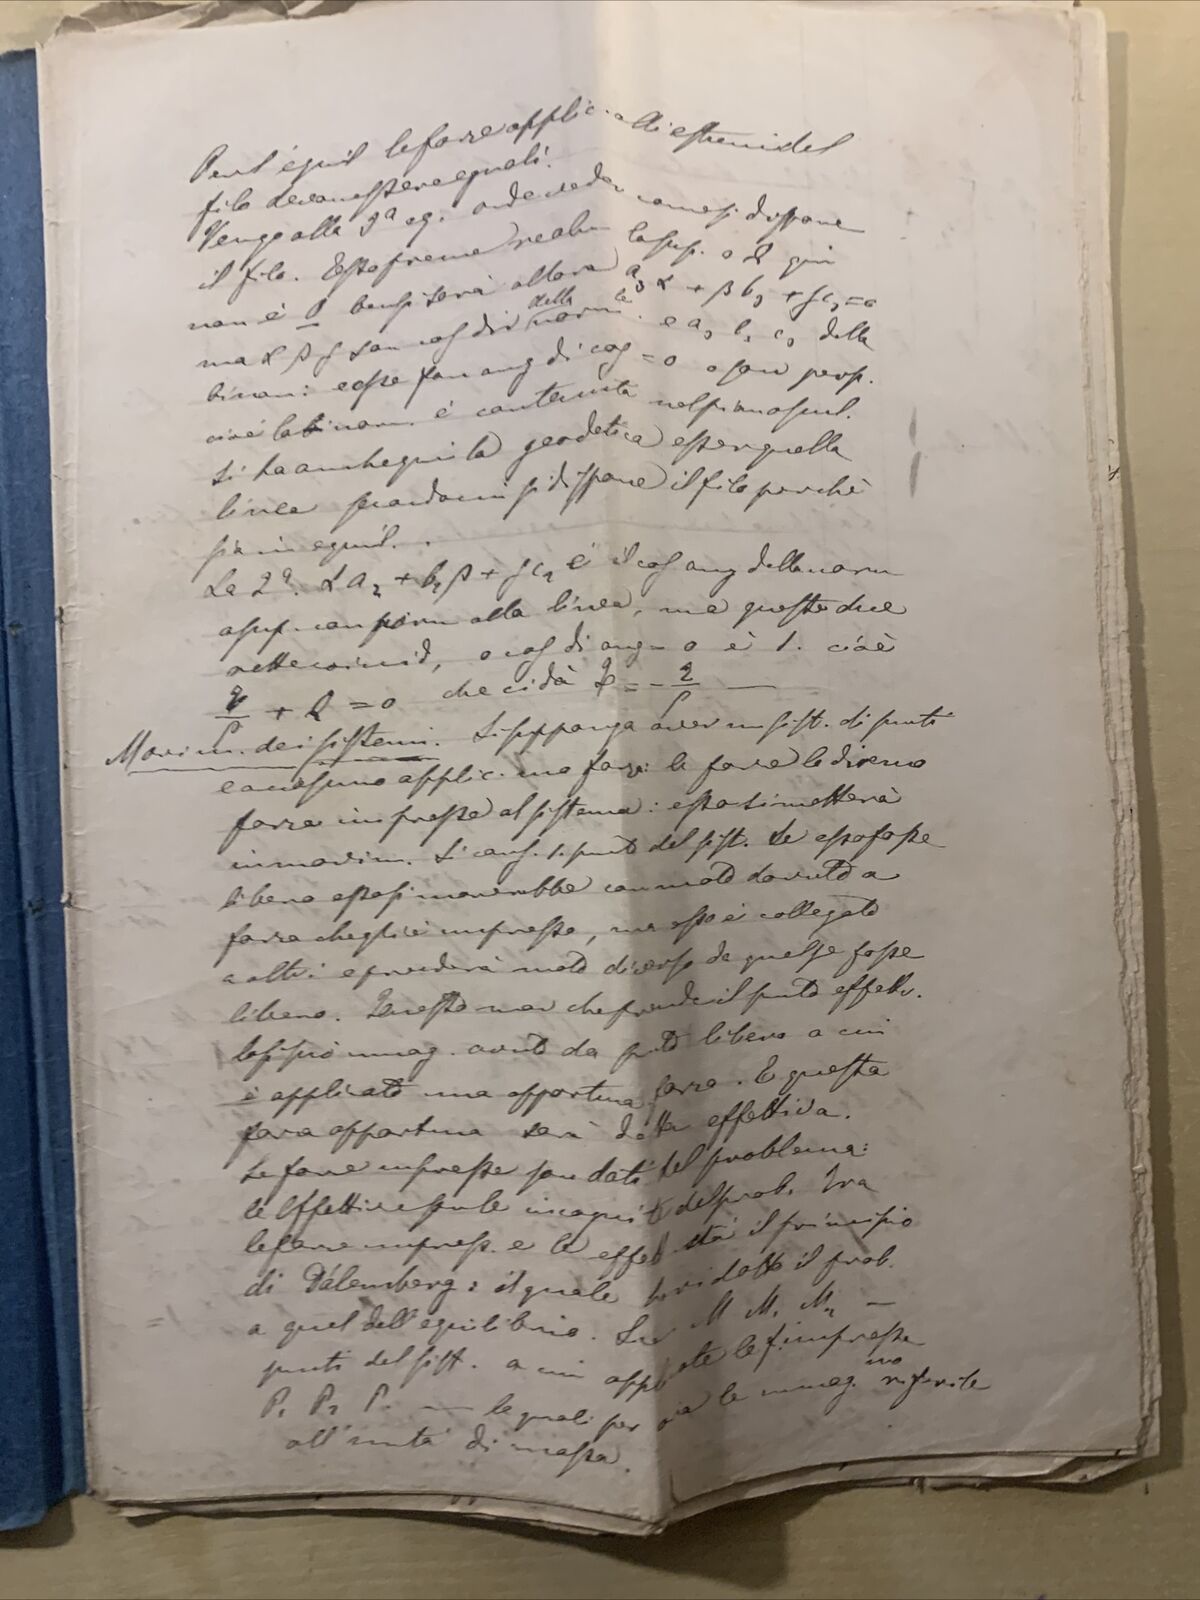 Per l'equil le forze applic. alli estremi del
filo devono essere eguali.
Vengo alla 3ª eq. onde veder come si dispone
il filo. Esso preme la sup. e qui
non è bensì sarà allora a₃ α + β b₃ + γ c₃ = 0
ma α β γ son cos di della norm. e a₃ b₃ c₃ della
binorm: esse fan ang di cos = 0 o son perp.
cioè la binorm. è contenuta nel piano
Si ha anche qui la geodetica esser quella
linea secondo cui si dispone il filo perchè
sia in equil.
La 2ª. α a₂ + b₂ β + γ c₂ è il cos ang della norm
a sup. con norm alla linea, ma queste due
rette coincid, e cos di ang = 0 è 1. cioè
q/ρ + R = 0 che ci dà R = - q/ρ
Movim. dei sistemi. Si supponga aver un sist. di punti
e a ciascuno applic. una forza: le forze le diremo
forze impresse al sistema: esso si metterà
in movim. Si cons. 1. punto del sist. Se esso fosse
libero esso si moverebbe con moto dovuto a
forza che gli è impressa, ma esso è collegato
a altri e prenderà moto diverso da quel se fosse
libero. Questo mov che prende il punto effettiv.
lo si può immag. avuto da punto libero a cui
è applicato una opportuna forza. E questa
forza opportuna sarà detta effettiva.
Le forze impresse son dati del problema:
le effettive son le incognite del prob. Tra
le forze impress. e le effet sta il principio
di Dálemberg: il quale ha ridotto il prob.
a quel dell'equilibrio. Sian M M₁ M₂ —
punti del sist. a cui applicate le f. impresse
P₁ P₂ P. — le quali per ora le immag.no riferite
all'unità di massa.